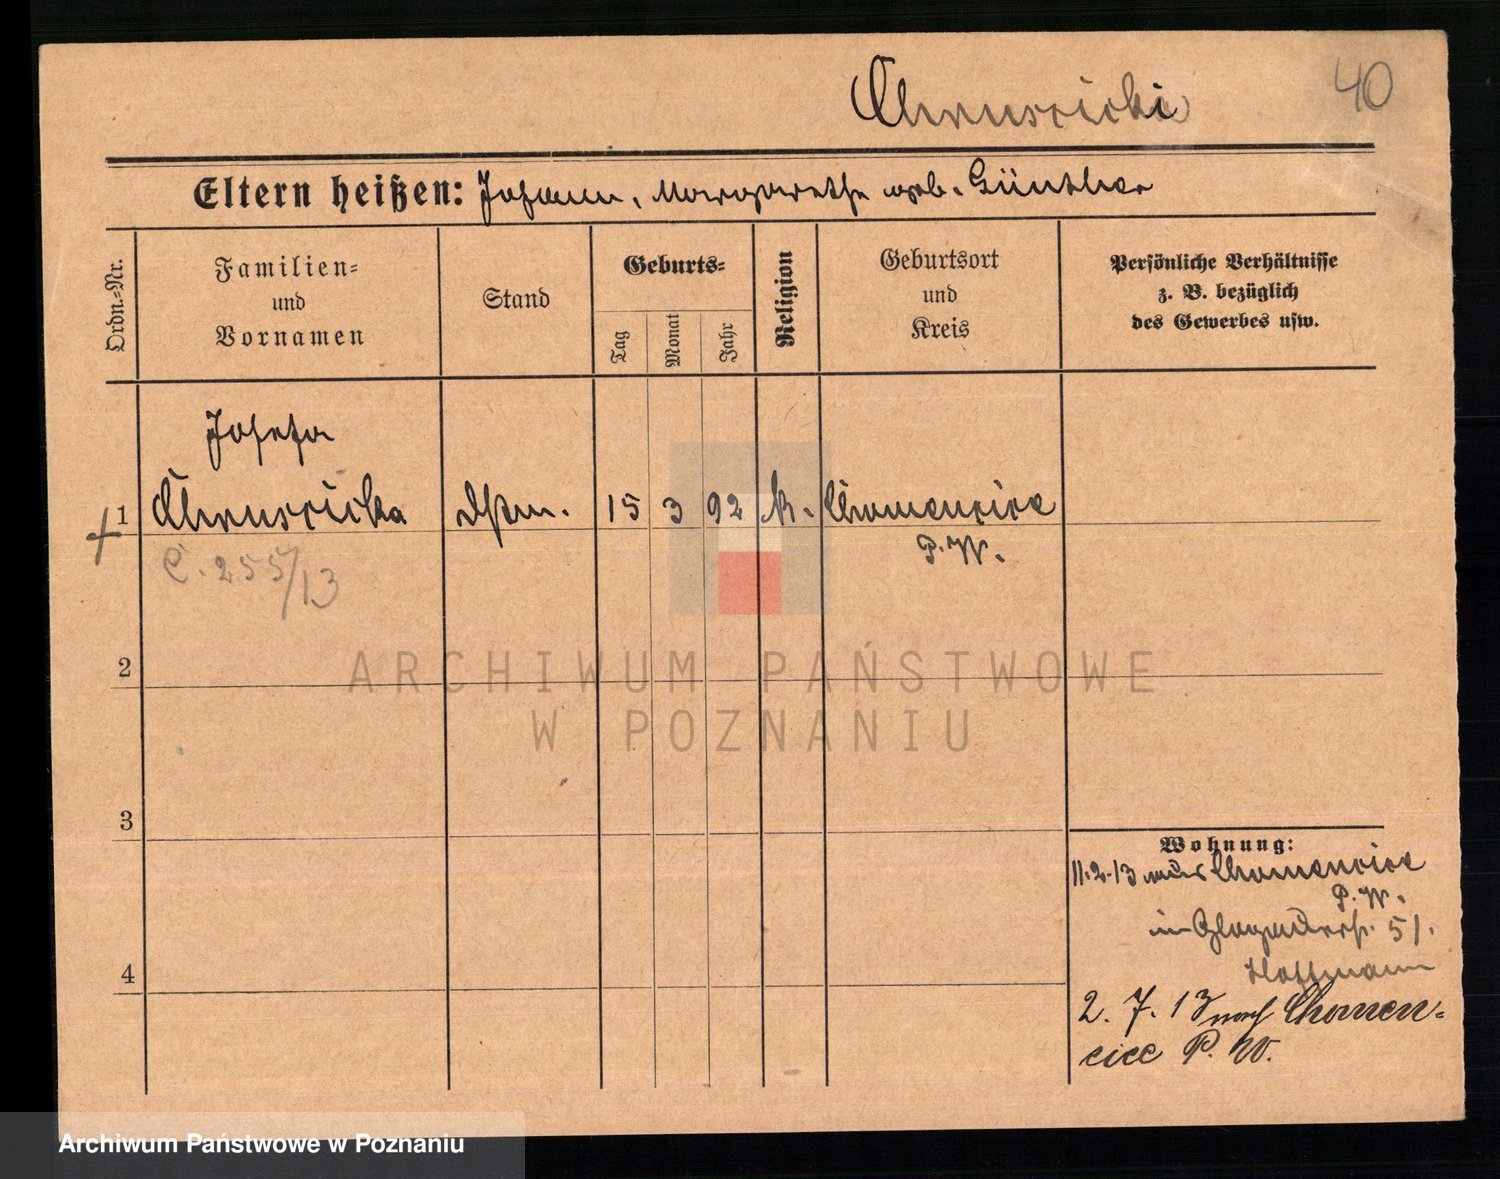 Chruscicki
40
Eltern heißen: Johann, Margarethe geb. Günther
Ordn.-Nr.
Familien=
und
Vornamen
Stand
Geburts=
Tag
Monat
Jahr
Religion
Geburtsort
und
Kreis
Persönliche Verhältnisse
z. B. bezüglich
des Gewerbes usw.
Josefa
1 Chruscicka Dstm. 15 3 92 k. Chomencice
P. W.
C. 255/13
2
ARCHIWUM PAŃSTWOWE
W POZNANIU
3
4
Wohnung:
11.2.13 aus Chomencice
P. W.
in Glogauerstr. 51.
Hoffmann
2. 7. 13 nach Chomen=
cice P. W.
Archiwum Państwowe w Poznaniu